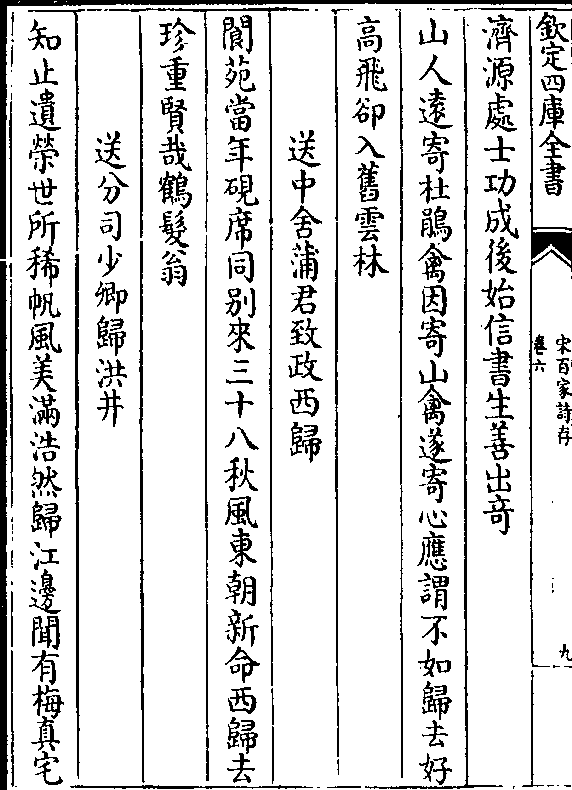 欽定四庫全書
宋百家詩存
卷六
九
濟源處士功成後始信書生善出竒
山人遠寄杜鵑禽因寄山禽遂寄心應謂不如歸去好
高飛卻入舊雲林
送中舍蒲君致政西歸
閬苑當年硯席同别來三十八秋風東朝新命西歸去
珍重賢哉鶴髮翁
送分司少卿歸洪井
知止遺榮世所稀帆風美滿浩然歸江邊聞有梅真宅